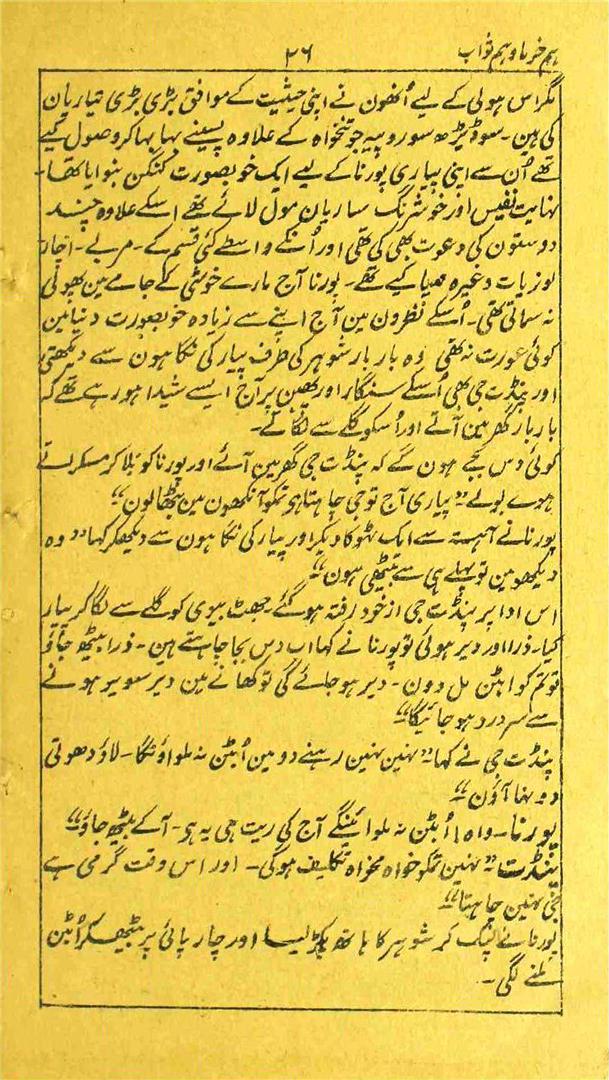 ہم خرما و ہم ثواب ۲۶
مگر اس ہولی کے لیے اُنھون نے اپنی حیثیت کے موافق بڑی بڑی تیاریان
کی ہین۔ سو ڈیڑھ سو روپیہ جو تنخواہ کے علاوہ پسینے بہا بہا کر وصول کیے
تھے اُن سے اپنی پیاری پورنا کے لیے ایک خوبصورت کنگن بنوایا تھا۔
نہایت نفیس اور خوشرنگ ساریان مول لائے تھے اسکے علاوہ چند
دوستون کی دعوت بھی کی تھی اور اُنکے واسطے کئی قسم کے۔ مربے۔ اچار
لوزیات وغیرہ مہیا کیے تھے۔ پورنا آج مارے خوشی کے جامے مین پھولی
نہ سماتی تھی۔ اُسکے نظرون مین آج اپنے سے زیادہ خوبصورت دنیا مین
کوئی عورت نہ تھی وہ بار بار شوہر کی طرف پیار کی نگاہون سے دیکھتی
اور پنڈت جی بھی اُسکے سنگار اور پھبن پر آج ایسے شیدا ہو رہے تھے کہ
بار بار گھر مین آتے اور اُسکو گلے سے لگاتے۔
کوئی دس بجے ہون گے کہ پنڈت جی گھر مین آئے اور پورنا کو بلا کر مسکراتے
ہوے بولے ”پیاری آج تو جی چاہتا ہی تمکو آنکھون مین بٹھا لون“
پورنا نے آہستہ سے ایک ٹھوکا دیکر اور پیار کی نگاہون سے دیکھکر کہا ”وہ
دیکھو مین تو پہلے ہی سے بیٹھی ہون“
اس ادا پر پنڈت جی از خود رفتہ ہو گئے جھٹ بیوی کو گلے سے لگا کر پیار
کیا۔ ذرا اور دیر ہوئی تو پورنا نے کہا اب دس بجا چاہتے ہین۔ ذرا بیٹھ جاؤ
تو تمکو اُبٹن مل دون۔ دیر ہو جائے گی تو کھانے مین دیر سویر ہونے
سے سر درد ہو جائیگا“
پنڈت جی نے کہا ”نہین نہین رہنے دو مین اُبٹن نہ ملواؤنگا۔ لاؤ دھوتی
دو نہا آؤن“
پورنا۔ واہ! اُبٹن نہ ملوائینگے آج کی ریت ہی یہ ہی۔ آکے بیٹھ جاؤ“
پنڈت ”نہین تمکو خواہ مخواہ تکلیف ہوگی۔ اور اس وقت گرمی ہے
جی نہین چاہتا“
پورنا نے لپک کر شوہر کا ہاتھ پکڑ لیا اور چارپائی پر بیٹھکر اُبٹن
ملنے لگی۔